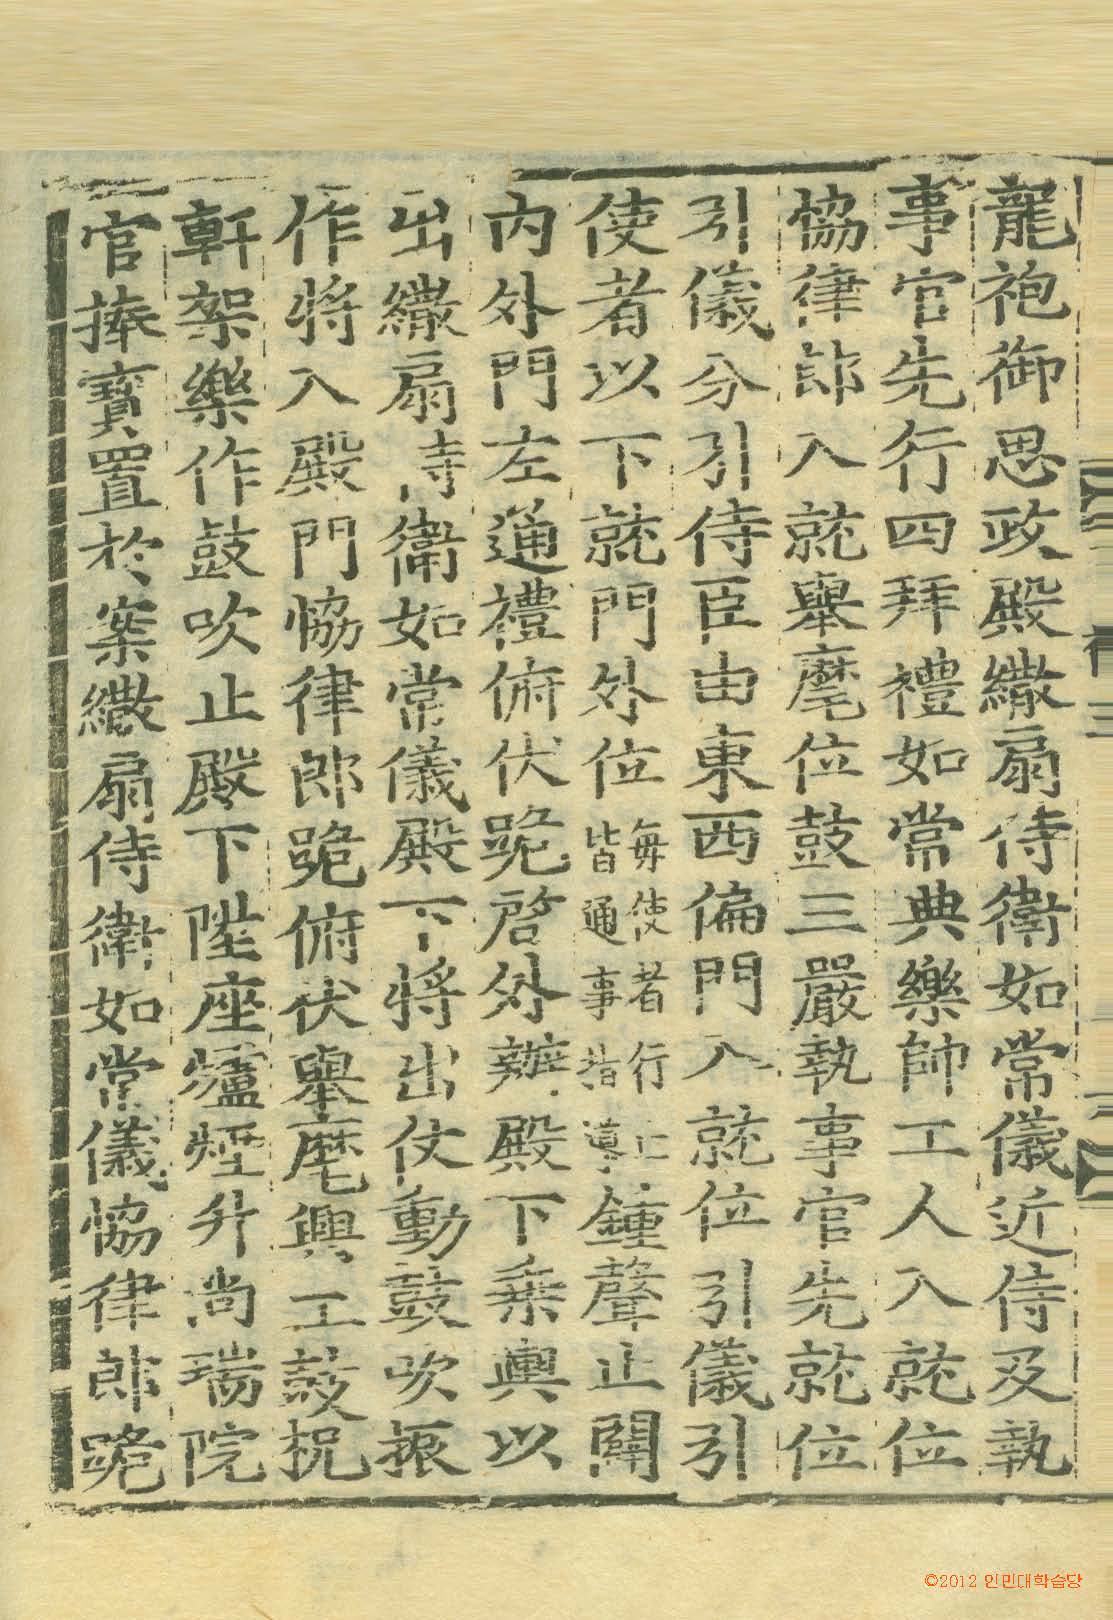 龍袍御思政殿繖扇侍衛如常儀近侍及執
事官先行四拜禮如常典樂帥工人入就位
恊律郎入就擧麾位鼓三嚴執事官先就位
引儀分引侍臣由東西偏門入就位引儀引
使者以下就門外位每使者行止皆通事指導鐘聲止闢
內外門左通禮俯伏跪啓外辦殿下乘輿以
出繖扇侍衛如常儀殿下將出仗動鼓吹振
作將入殿門恊律郎跪俯伏擧麾興工鼓柷
軒架樂作鼓吹止殿下陞座爐煙升尙瑞院
官捧寶置於案繖扇侍衛如常儀恊律郎跪
©2012 인민대학습당